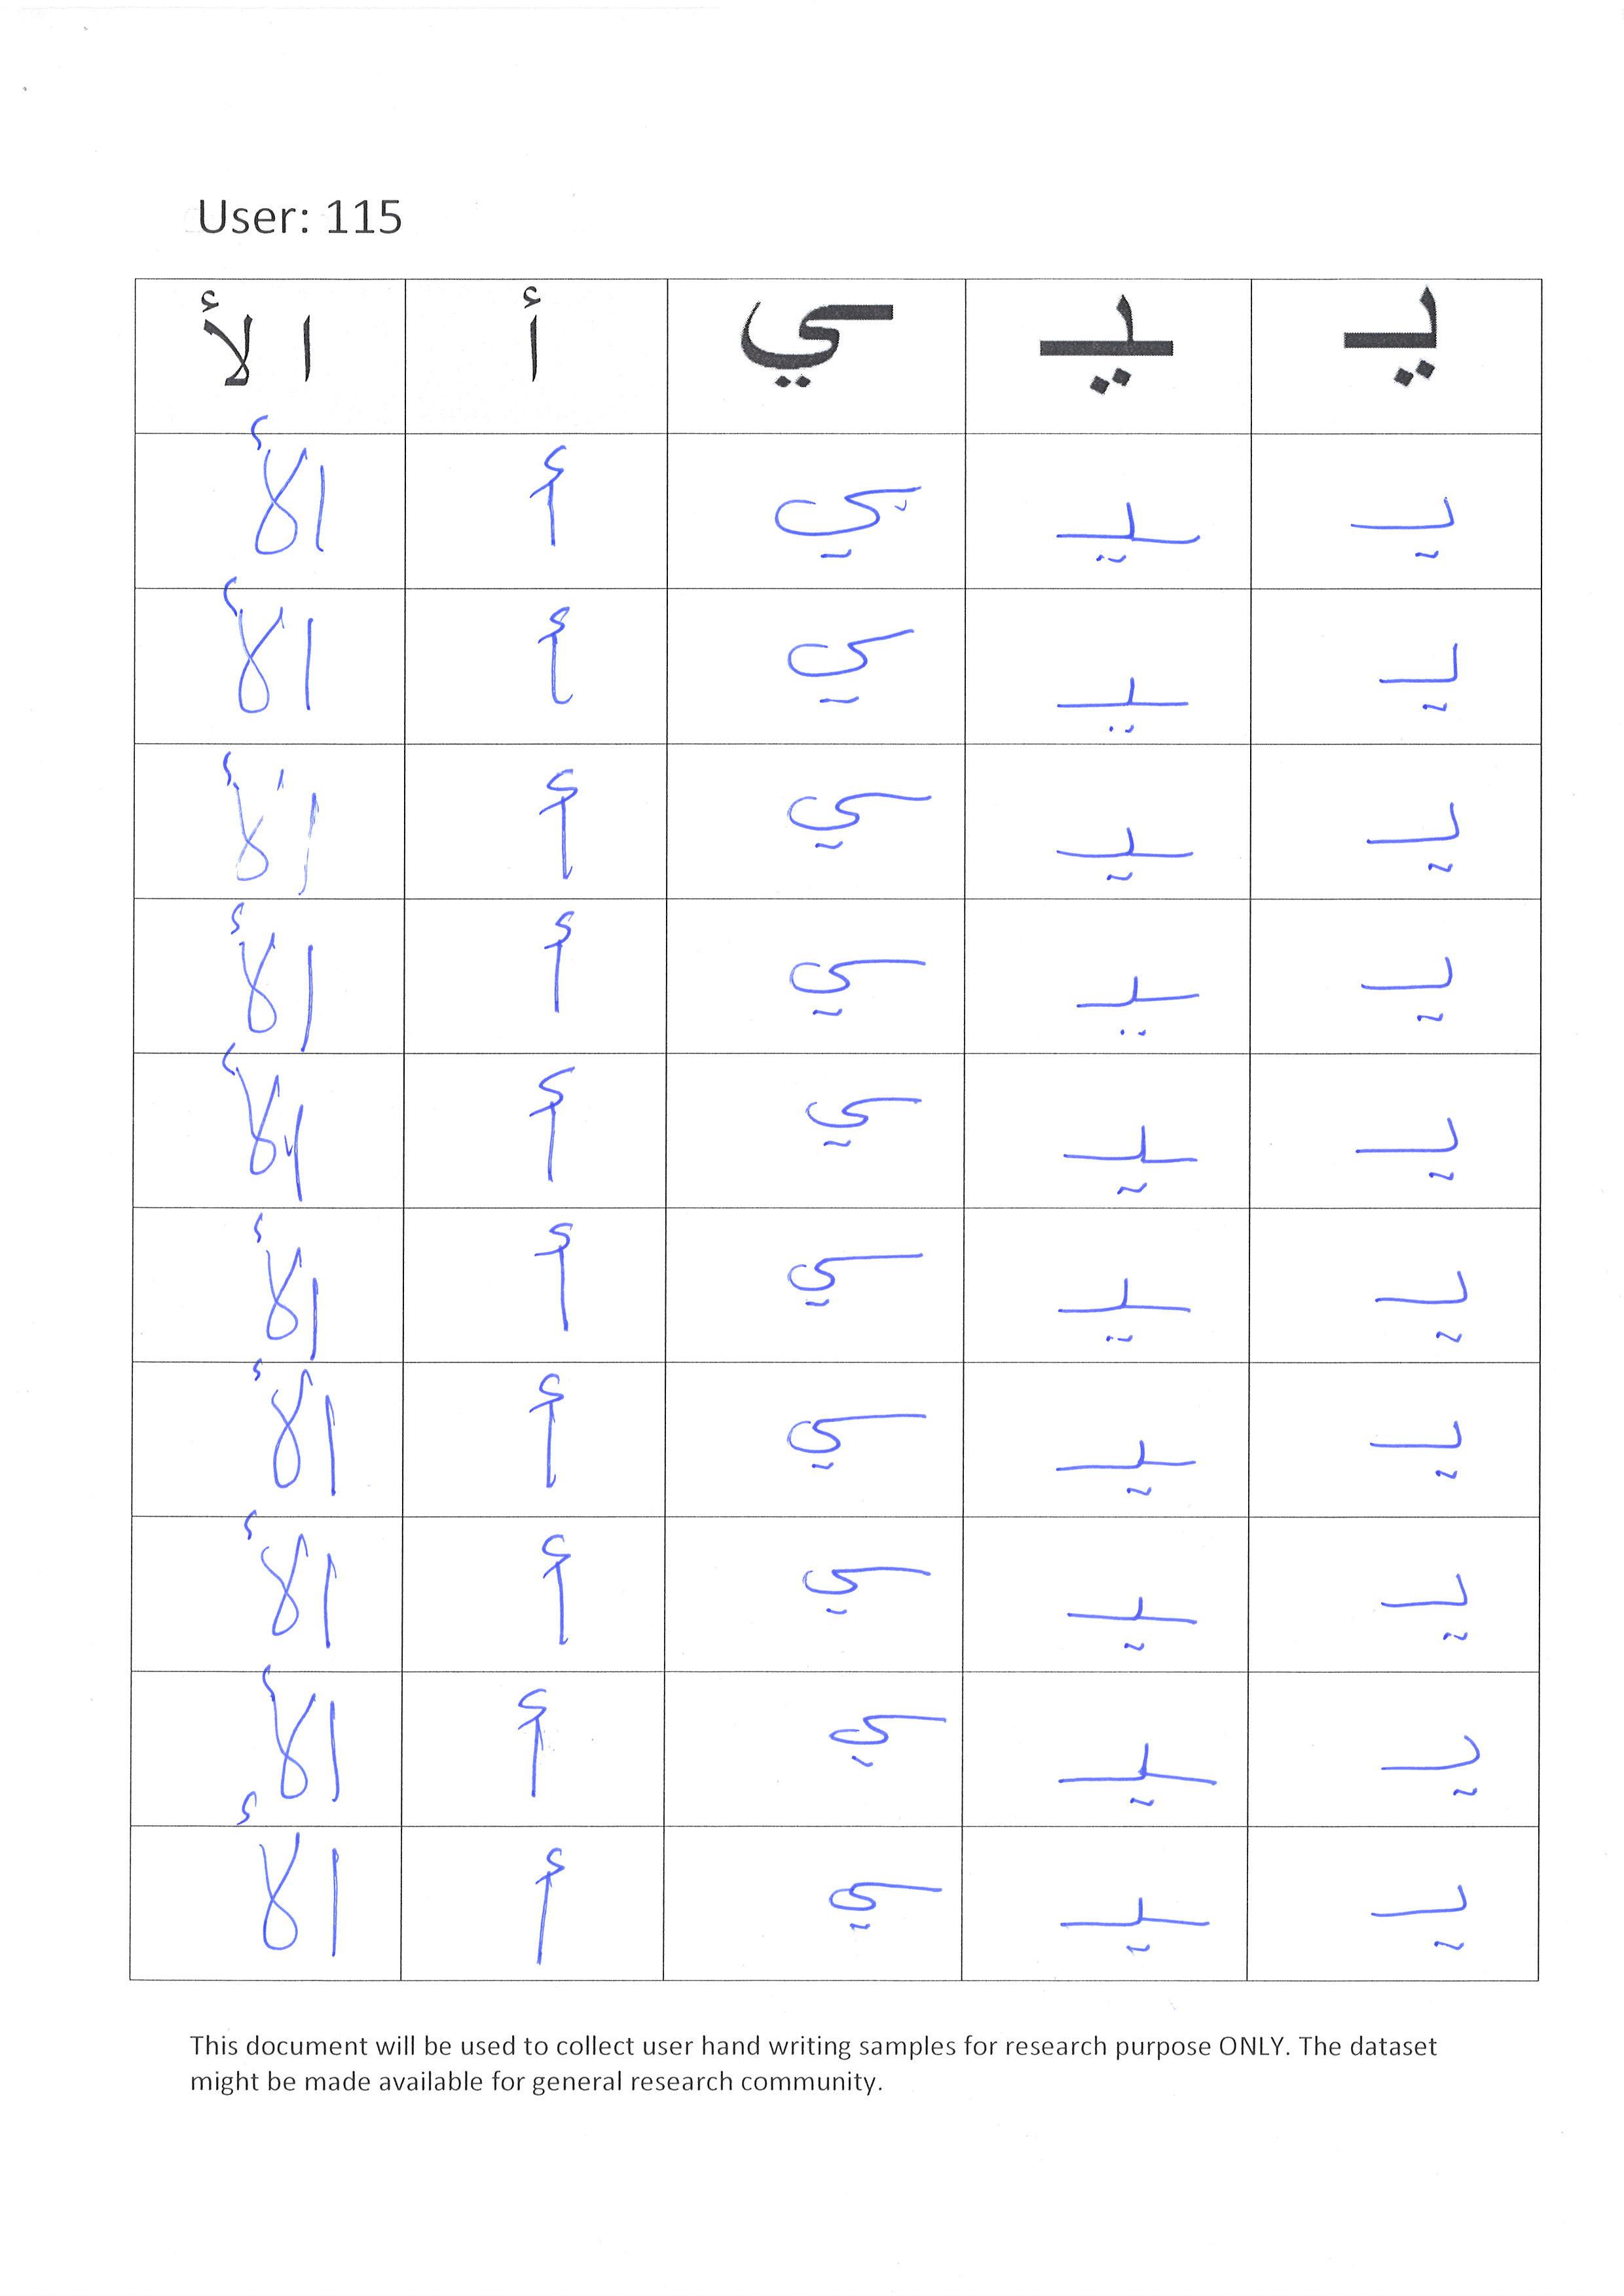 User: 115
يـ ـيـ ـي أ ا لأ
يـ ـيـ ـي أ ا لأ
يـ ـيـ ـي أ ا لأ
يـ ـيـ ـي أ ا لأ
يـ ـيـ ـي أ ا لأ
يـ ـيـ ـي أ ا لأ
يـ ـيـ ـي أ ا لأ
يـ ـيـ ـي أ ا لأ
يـ ـيـ ـي أ ا لأ
يـ ـيـ ـي أ ا لأ
يـ ـيـ ـي أ ا لأ
This document will be used to collect user hand writing samples for research purpose ONLY. The dataset
might be made available for general research community.